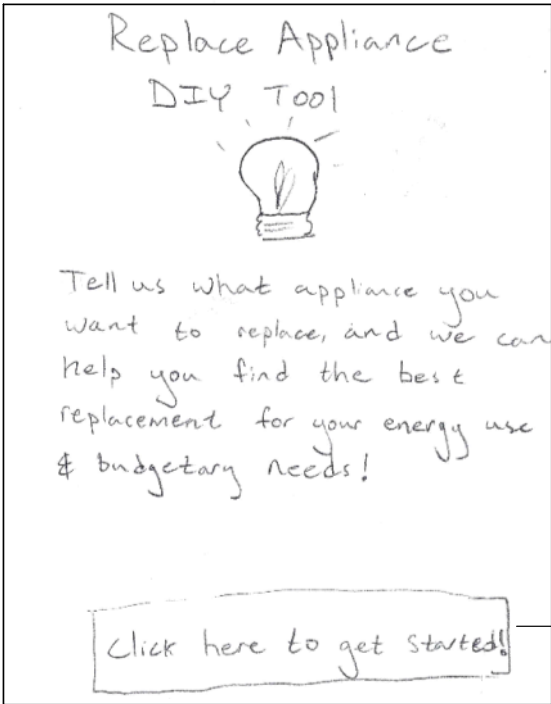 Replace Appliance
DIY Tool
Tell us what appliance you
want to replace, and we can
help you find the best
replacement for your energy use
& budgetary needs!
Click here to get started!